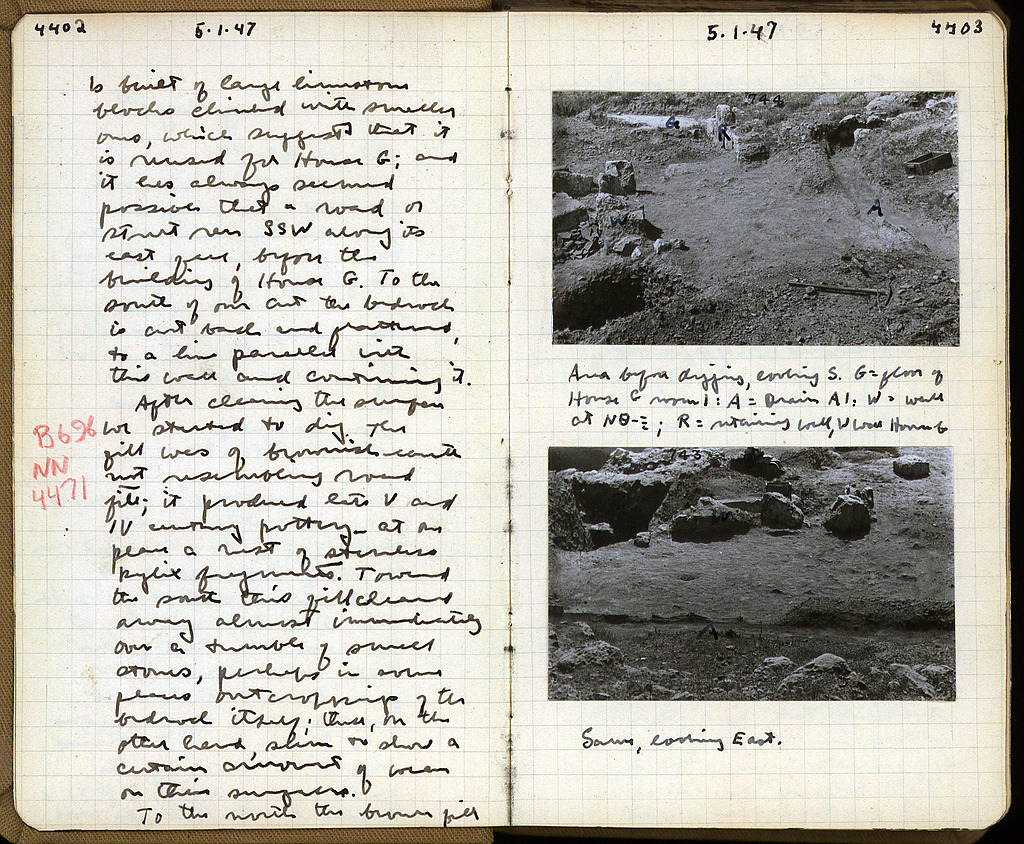 4402
5·1·47
is built of large limestone
blocks chinked with smaller
ones, which suggests that it
is reused for House G; and
it has always seemed
possible that a road or
street ran SSW along its
east face, before the
building of House G. To the
south of our cut the bedrock
is cut back and flattened,
to a line parallel with
this wall and continuing it.
After cleaning the surface
we started to dig. The
fill was of brownish earth
not resembling road
fill; it produced late V and
IV century pottery — at one
place a nest of stemless
kylix fragments. Toward
the south this fill cleared
away almost immediately
over a tumble of small
stones, perhaps in some
places outcroppings of the
bedrock itself; these, on the
other hand, seem to show a
certain amount of wear
on their surfaces.
To the north the brown fill
B696
NN
4471
5·1·47
4403
744
G
R
A
Area before digging, looking S. G = floor of
House G room 1: A = Drain A1: W = wall
at ; R = retaining wall, W wall House G
743
W
A
Same, looking East.